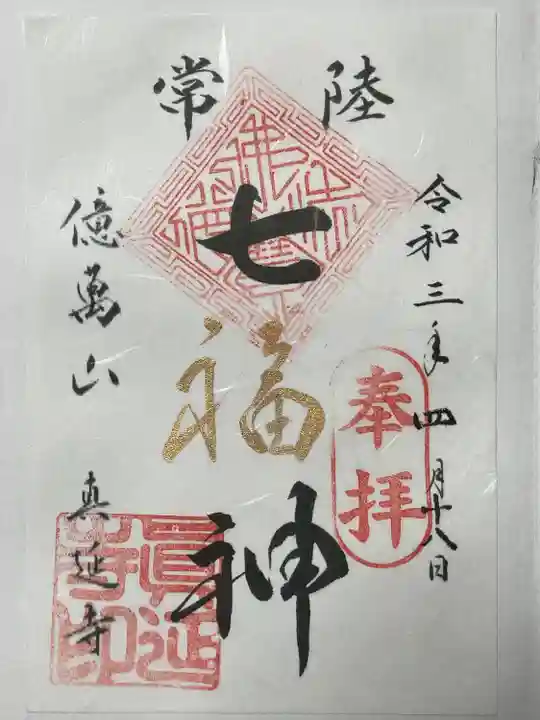 常陸
七福神
令和三年四月十八日
奉拝
億萬山 真延寺
眞延寺印